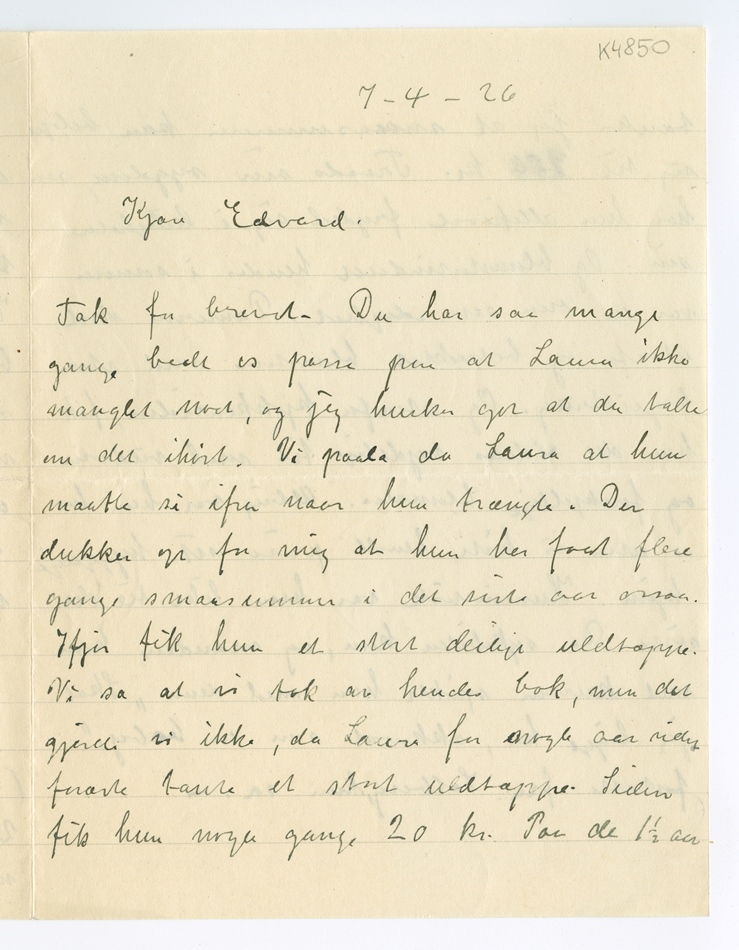 K4850
7-4-26
Kjære Edvard.
Tak for brevet. Du har saa mange
gange bedt os passe paa at Laura ikke
manglet noet, og jeg husker godt at du talte
om det ihøst. Vi paala da Laura at hun
maatte si ifra naar hun trængte. Der
dukker op for mig at hun har faat flere
gange smaasummer i det siste aar ossaa.
Ifjor fik hun et stort deilig uldtæppe.
Vi sa at vi tok av hendes bok, men det
gjorde vi ikke, da Laura for nogle aar siden
forærte tante et stort uldtæppe. Siden
fik hun nogle gange 20 kr. Paa de 1½ aar